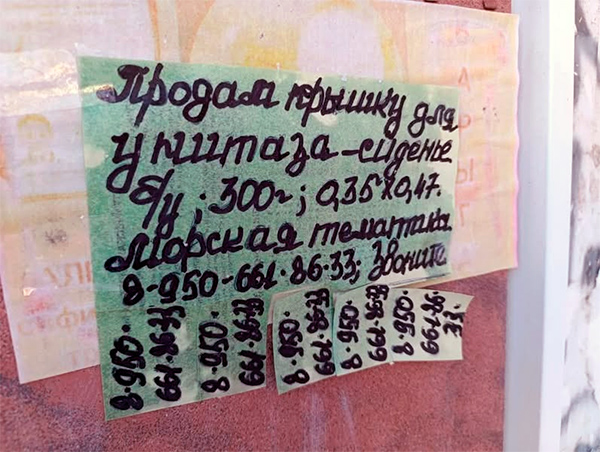 Продам крышку для
унитаза-сиденье
б/у; 300г; 0,35х0,47.
Морская тематика.
8-950-661-86-33; Звоните
8-950-
661-86-33
8-950-
661-86-33
8-950-
661-86-33
8-950-
661-86-33
8-950-
661-86-
33.